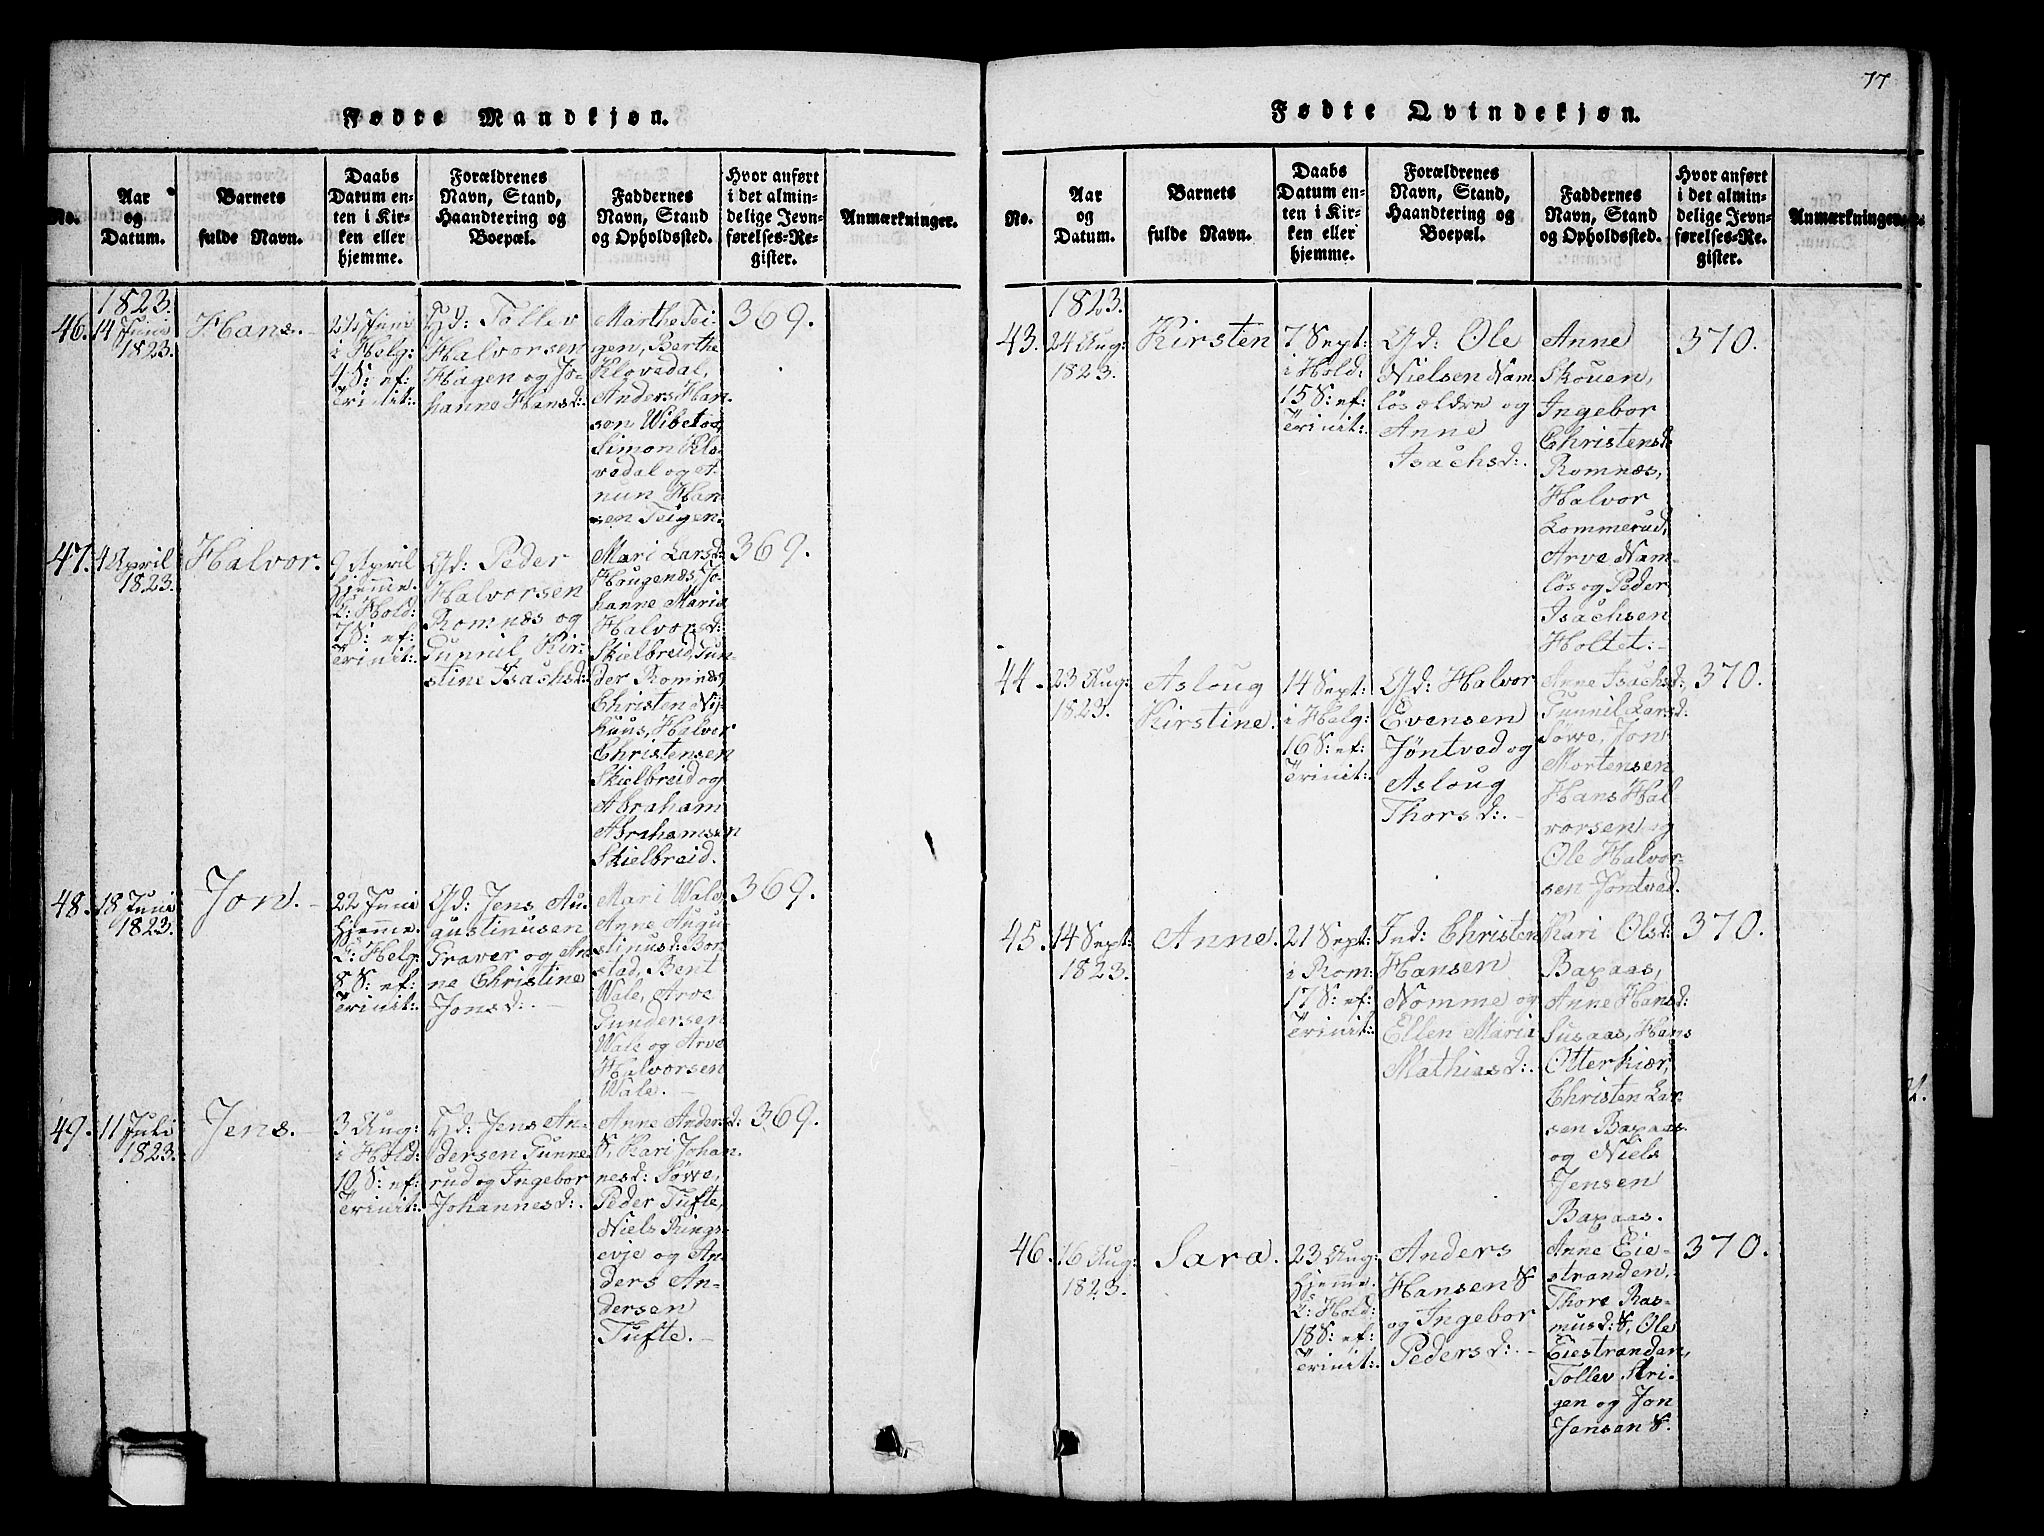 Fødte Mandkjøn.
No.
Aar
og
Datum.
Barnets
fulde Navn.
Daabs
Datum en-
ten i Kir-
ken eller
hjemme.
Forældrenes
Navn, Stand,
Haandtering og
Boepæl.
Faddernes
Navn, Stand
og Opholdssted.
Hvor anført
i det almin-
delige Jevn-
førelses-Re-
gister.
Anmærkninger.
1823.
46.
14 Juni
1823.
Hans.
22 Juni
i Helg:
4 S: ef:
Trinit:
Gd: Tollev
Halvorsen
Hagen og Jo-
hanne Hansd:
Marthe Tei-
gen, Berthe
Klovedal,
Anders Han-
sen Wibeto,
Simon Klo-
vedal og A-
nun Han-
sen Teigen.
369.
47.
4 April
1823.
Halvor.
9 April
hjemme.
I: Hold:
7 S: ef:
Trinit:
Gd: Peder
Halvorsen
Romnæs og
Gunnil Kir-
stine Isachsd:
Mari Larsd:
Haugenæs, Jo-
hanne Maria
Halvorsd:
Skielbreid, Gun-
der Romnæs,
Christen
huus, Halvor
Christensen
Skielbreid og
Abraham
Abrahamsen
Skielbreid.
369.
48.
18 Juni
1823.
Jon.
22 Juni
hjemme.
I: Helg:
8 S: ef:
Trinit:
Gd: Jens Au-
gustinusen
Graver og An-
ne Christine
Jonsd:
Mari Wale,
Anne Augu-
stinusd: Bor-
stad, Bent
Wale, Arve
Gundersen
Wale og Arve
Halvorsen
Wale.
369.
49.
11 Juli
1823.
Jens.
3 Aug:
i Hold:
10 S: ef:
Trinit:
Gd: Jens An-
dersen Gunne-
rud og Ingebor
Johannesd:
Anne Andersd:
S, Kari Johan-
nesd: Sowe,
Peder Tufte,
Niels Rings-
evje og An-
ders An-
dersen
Tufte.
369.
77
Fødte Qvindekjøn.
No.
Aar
og
Datum.
Barnets
fulde Navn.
Daabs
Datum en-
ten i Kir-
ken eller
hjemme.
Forældrenes
Navn, Stand,
Haandtering og
Boepæl.
Faddernes
Navn, Stand
og Opholdssted.
Hvor anført
i det almin-
delige Jevn-
førelses-Re-
gister.
Anmærkninger.
1823.
43.
24 Aug:
1823.
Kirsten
7 Sept:
i Hold:
15 S: ef:
Trinit:
Gd: Ole
Nielsen Nam-
løs ældre og
Anne
Isachsd:
Anne
Skouen,
Ingebor
Christensd:
Romnæs,
Halvor
Lommerud,
Arve Nam-
løs og Peder
Isachsen
Holtet.
370.
44.
23 Aug:
1823.
Asloug
Kirstine.
14 Sept:
i Helg:
16 S: ef:
Trinit:
Gd: Halvor
Evensen
Jøntved og
Asloug
Thorsd:
Anne Isachsd:
Gunnil Larsd:
Sowe, Jon
Mortensen
Hans Hal-
vorsen og
Ole Halvor-
sen Jøntved.
370.
45.
14 Sept:
1823.
Anne.
21 Sept:
i Rom:
17 S: ef:
Trinit:
Ind: Christen
Hansen
Nomme og
Ellen Maria
Mathiasd:
Kari Olsd:
Baxaas,
Anne Hansd:
Susaas, Hans
Otterkiær,
Christen Lar-
sen Baxaas
og Niels
Jensen
Baxaas.
370.
46.
16 Aug:
1823.
Sara.
23 Aug:
hjemme.
I: Hold:
18 S: ef:
Trinit:
Anders
Hansen S
og Ingebor
Pedersd:
Anne Eie-
stranden,
Thore Ras-
musd: S, Ole
Eiestranden,
Tollev Stri-
gen og Jon
Jensen S.
370.